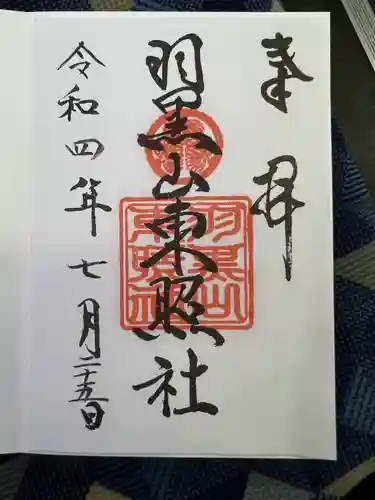 奉拝
羽黒山東照社
羽黒山東照社
令和四年七月二十五日